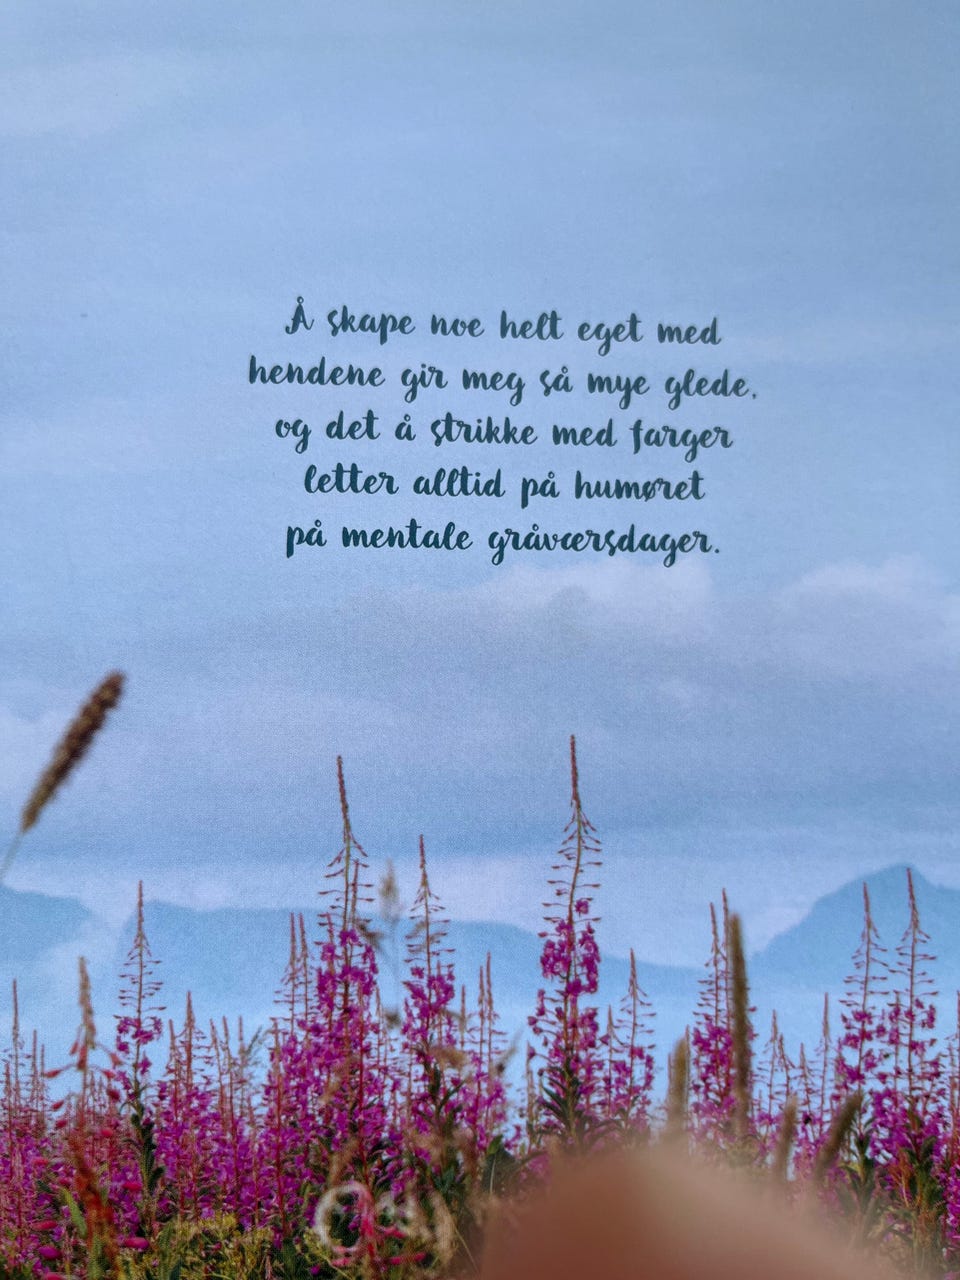 Å skape noe helt eget med
hendene gir meg så mye glede,
og det å strikke med farger
letter alltid på humøret
på mentale gråværsdager.